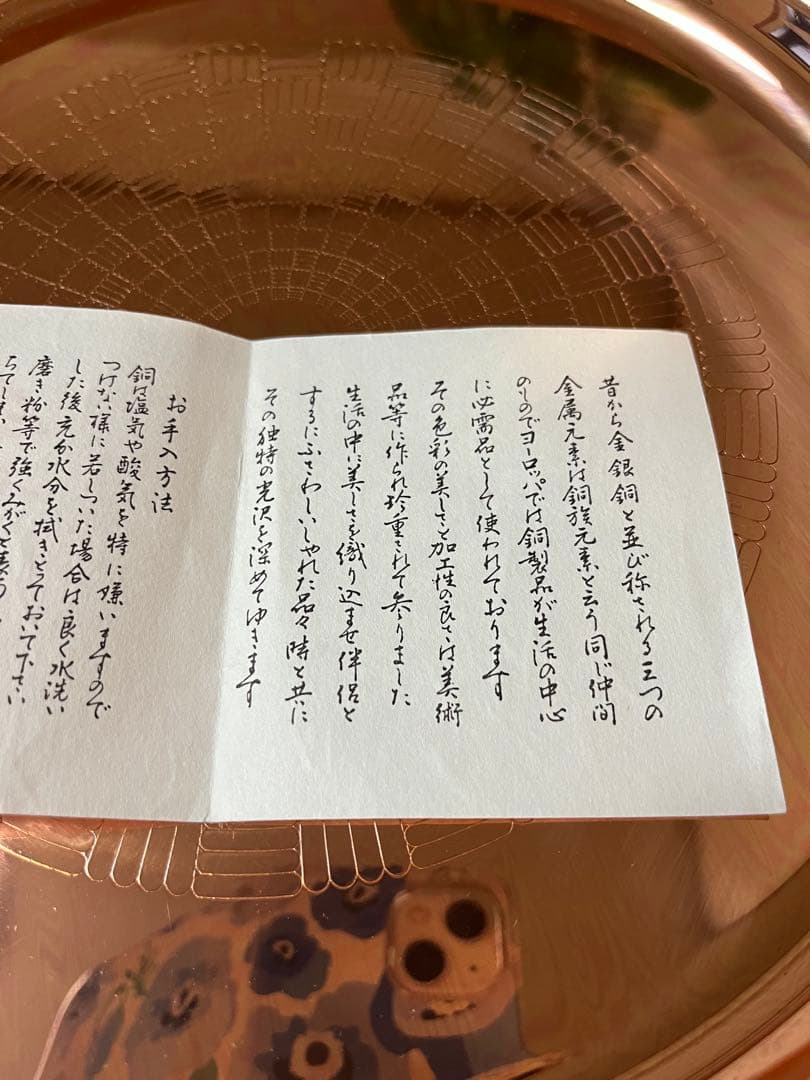 昔から金銀銅と並び称される三つの
金属元素は銅族元素と云う同じ仲間
のものでヨーロッパでは銅製品が生活の中心
に必需品として使われております
その色彩の美しさと加工性の良さは美術
品等に作られ珍重されて参りました
生活の中に美しさを織り込ませ伴侶と
するにふさわしいしゃれた品々時と共に
その独特の光沢を深めてゆきます
お手入方法
銅は塩気や酸気を特に嫌いますので
つけない様に若しついた場合は良く水洗い
した後充分水分を拭きとっておいて下さい
磨き粉等で強くみがくと